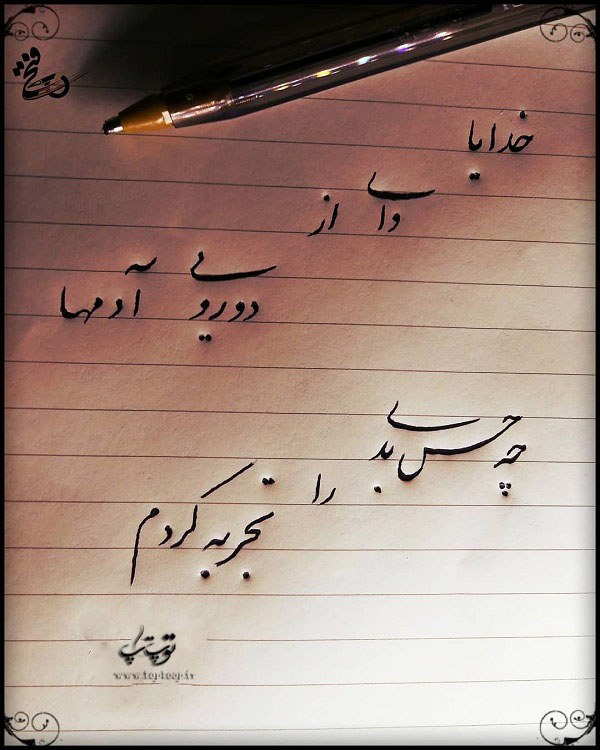 خدایا
وای از
دورویی آدمها
چه حس بدی
را
تجربه کردم
توپ تاپ
www.toptoop.ir